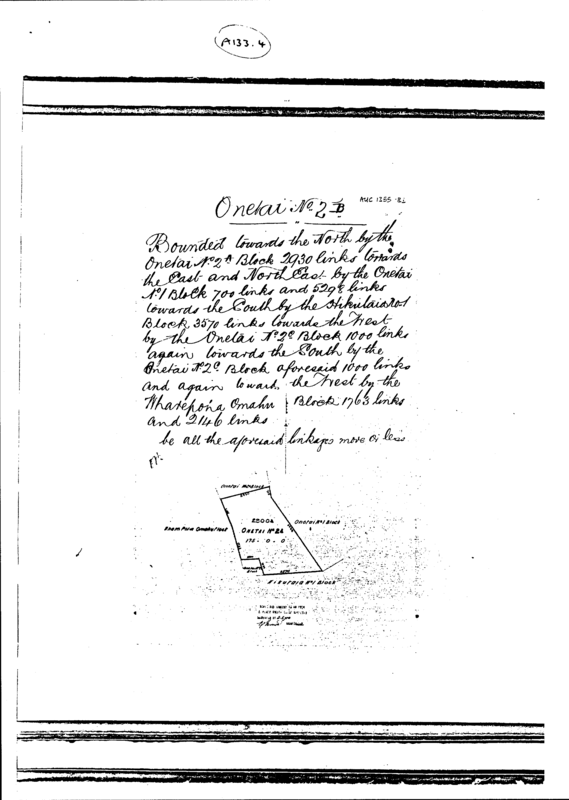 A133.4
Onetai No. 2 B
AUC 1355
Bounded towards the North by the
Onetai No. 2A Block 2930 links towards
the East and North East by the Onetai
No. 1 Block 700 links and 5298 links
towards the South by the
Block 3570 links towards the West
by the Onetai No. 2C Block 1000 links
again towards the South by the
Onetai No. 2C Block aforesaid 1000 links
and again toward, the West by the
Wharepoha Omahu Block 1763 links
and 2146 links
be all the aforesaid linkages more or less
Onetai
Omahu
2200A
ONETAI No 2
Onetai No 1 Block
175 - 0 - 0
No 1 Block